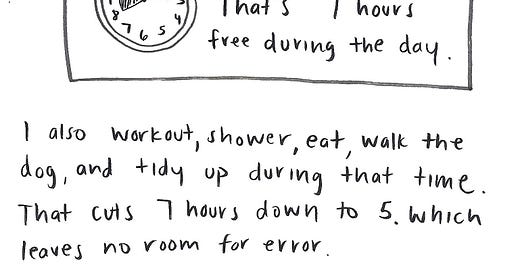 8 7 6 5 4
That's 7 hours
free during the day.
I also workout, shower, eat, walk the
dog, and tidy up during that time.
That cuts 7 hours down to 5. Which
leaves no room for error.